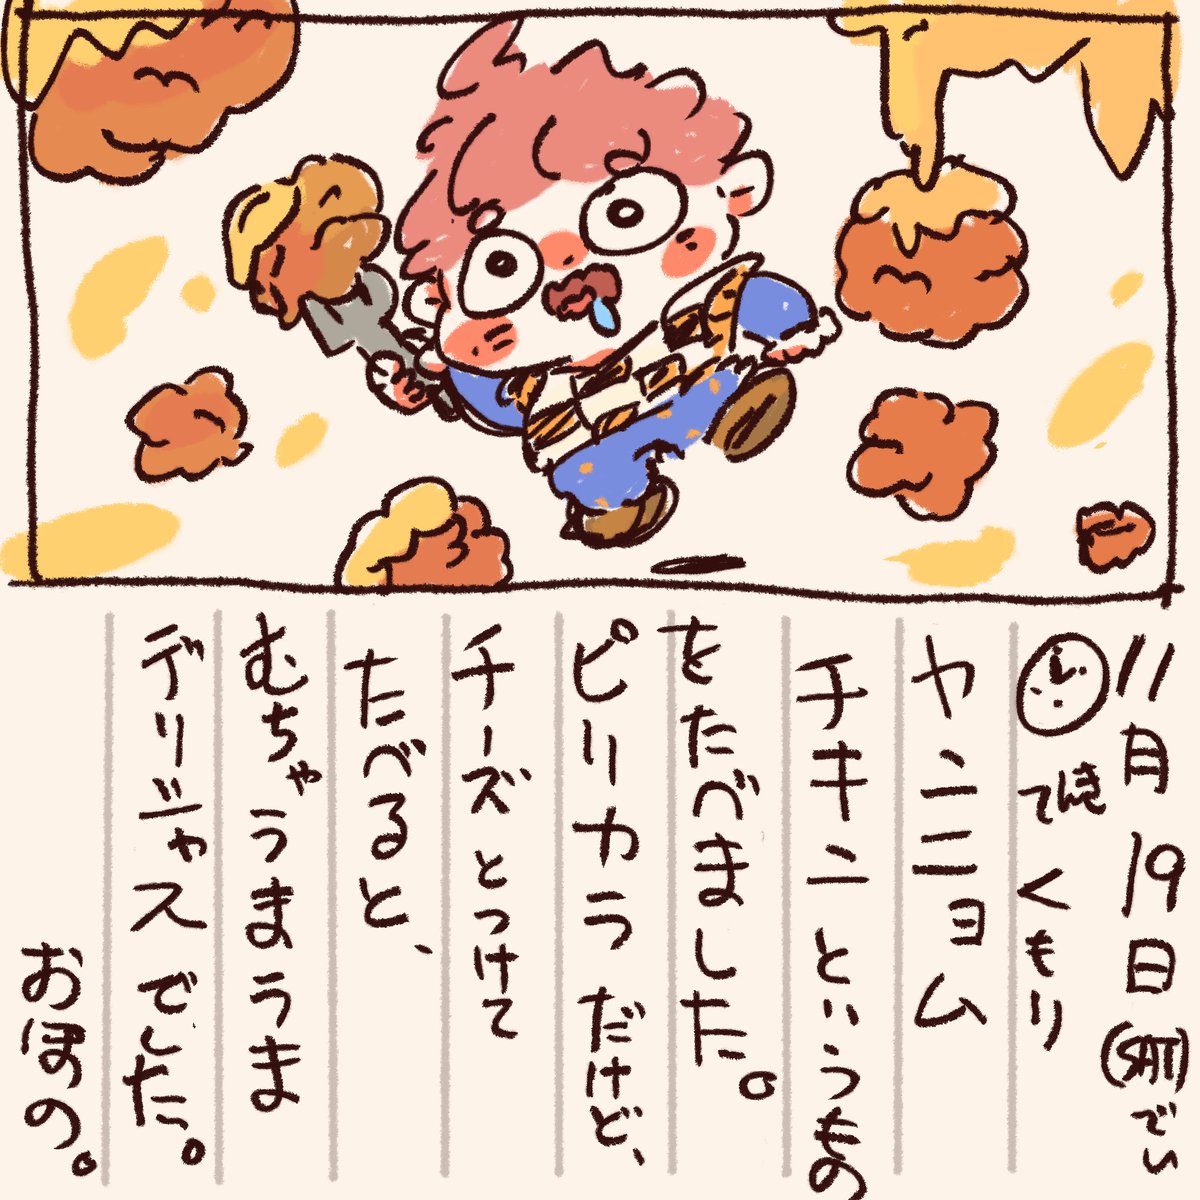 11月19日(SAT)でい
てんき くもり
ヤンニョム
チキンというもの
をたべました。
ピリカラだけど、
チーズとつけて
たべると、
むちゃうまうま
デリシャスでした。
おほの。